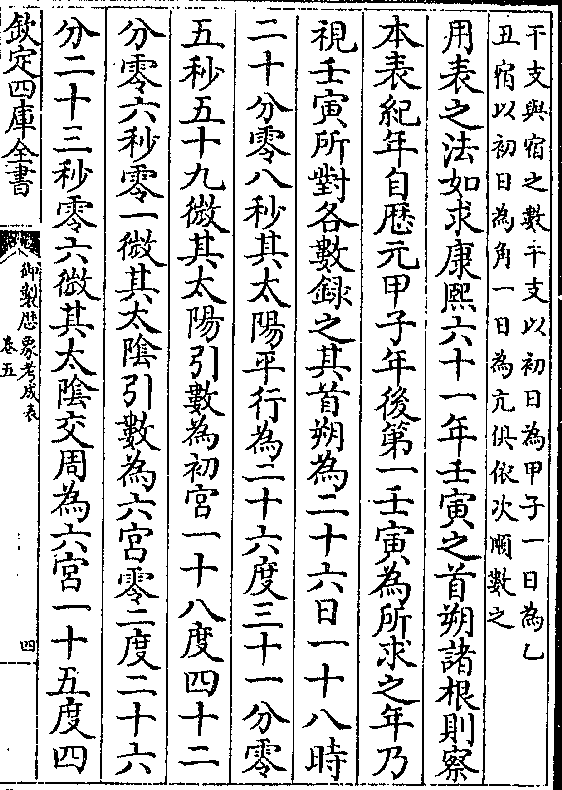 干支與宿之數干支以初日為甲子一日為乙
丑宿以初日為角一日為亢俱依次順數之
用表之法如求康熙六十一年壬寅之首朔諸根則察
本表紀年自厯元甲子年後第一壬寅為所求之年乃
視壬寅所對各數録之其首朔為二十六日一十八時
二十分零八秒其太陽平行為二十六度三十一分零
五秒五十九微其太陽引數為初宮一十八度四十二
分零六秒零一微其太陰引數為六宮零二度二十六
分二十三秒零六微其太陰交周為六宮一十五度四
欽定四庫全書
御製厯象考成表
卷五
四